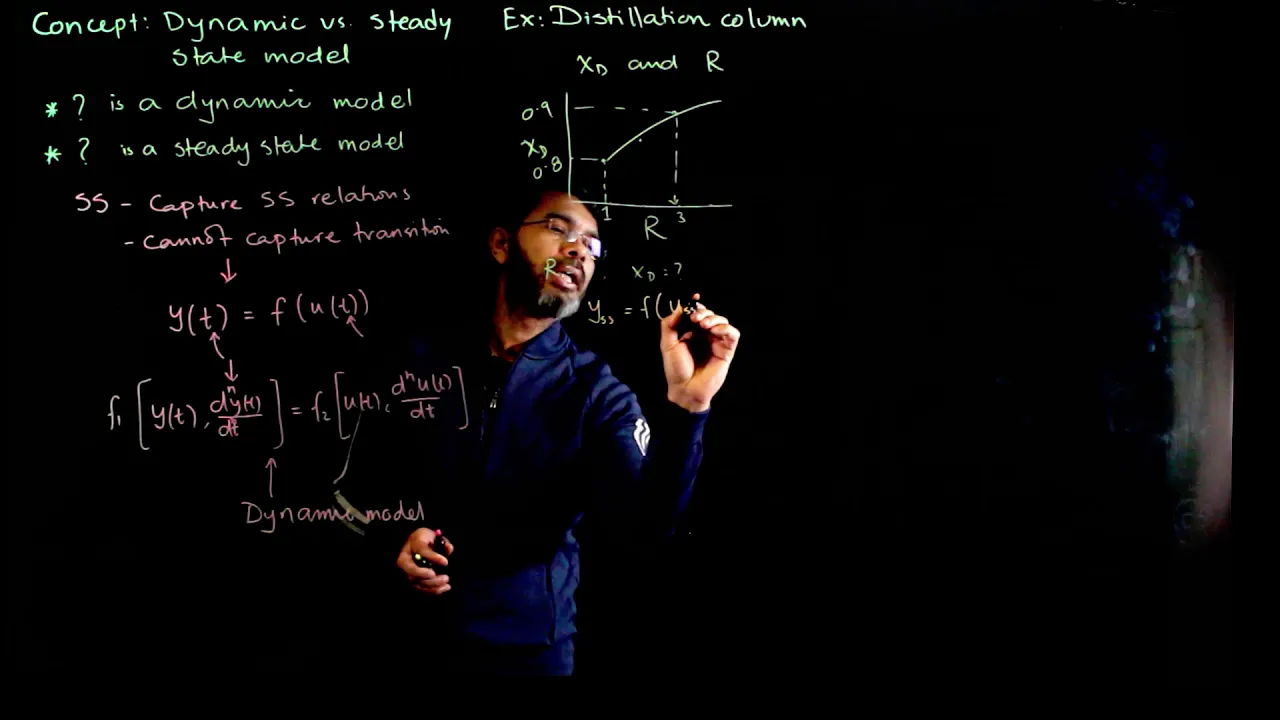 Concept: Dynamic vs. steady
state model
* ? is a dynamic model
* ? is a steady state model
SS - Capture SS relations
- Cannot capture transition
y(t) = f(u(t))
f₁[y(t), dⁿy(t)/dt] = f₂[u(t), dⁿu(t)/dt]
Dynamic model
Ex: Distillation column
x_D and R
0.9
x_D
0.8
1 3
R
R x_D = ?
y_ss = f(u_ss